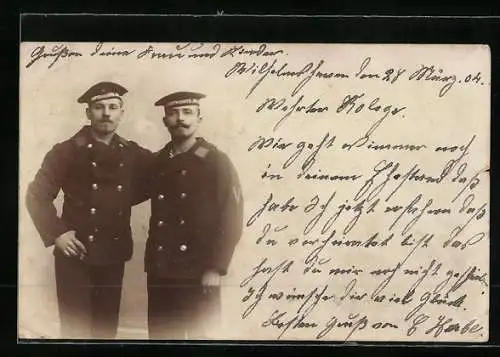 Grüßen deine Frau und Kinder.
Wilhelmshaven den 28 März. 04.
Wehrter Kolege.
Wie geht es immer noch
in deinem Ehestand daß
habe Ich jetzt erfahren daß
du verheiratet bist das
hast du mir noch nicht
Ich wünsche dir viel Glück.
Besten Gruß von E